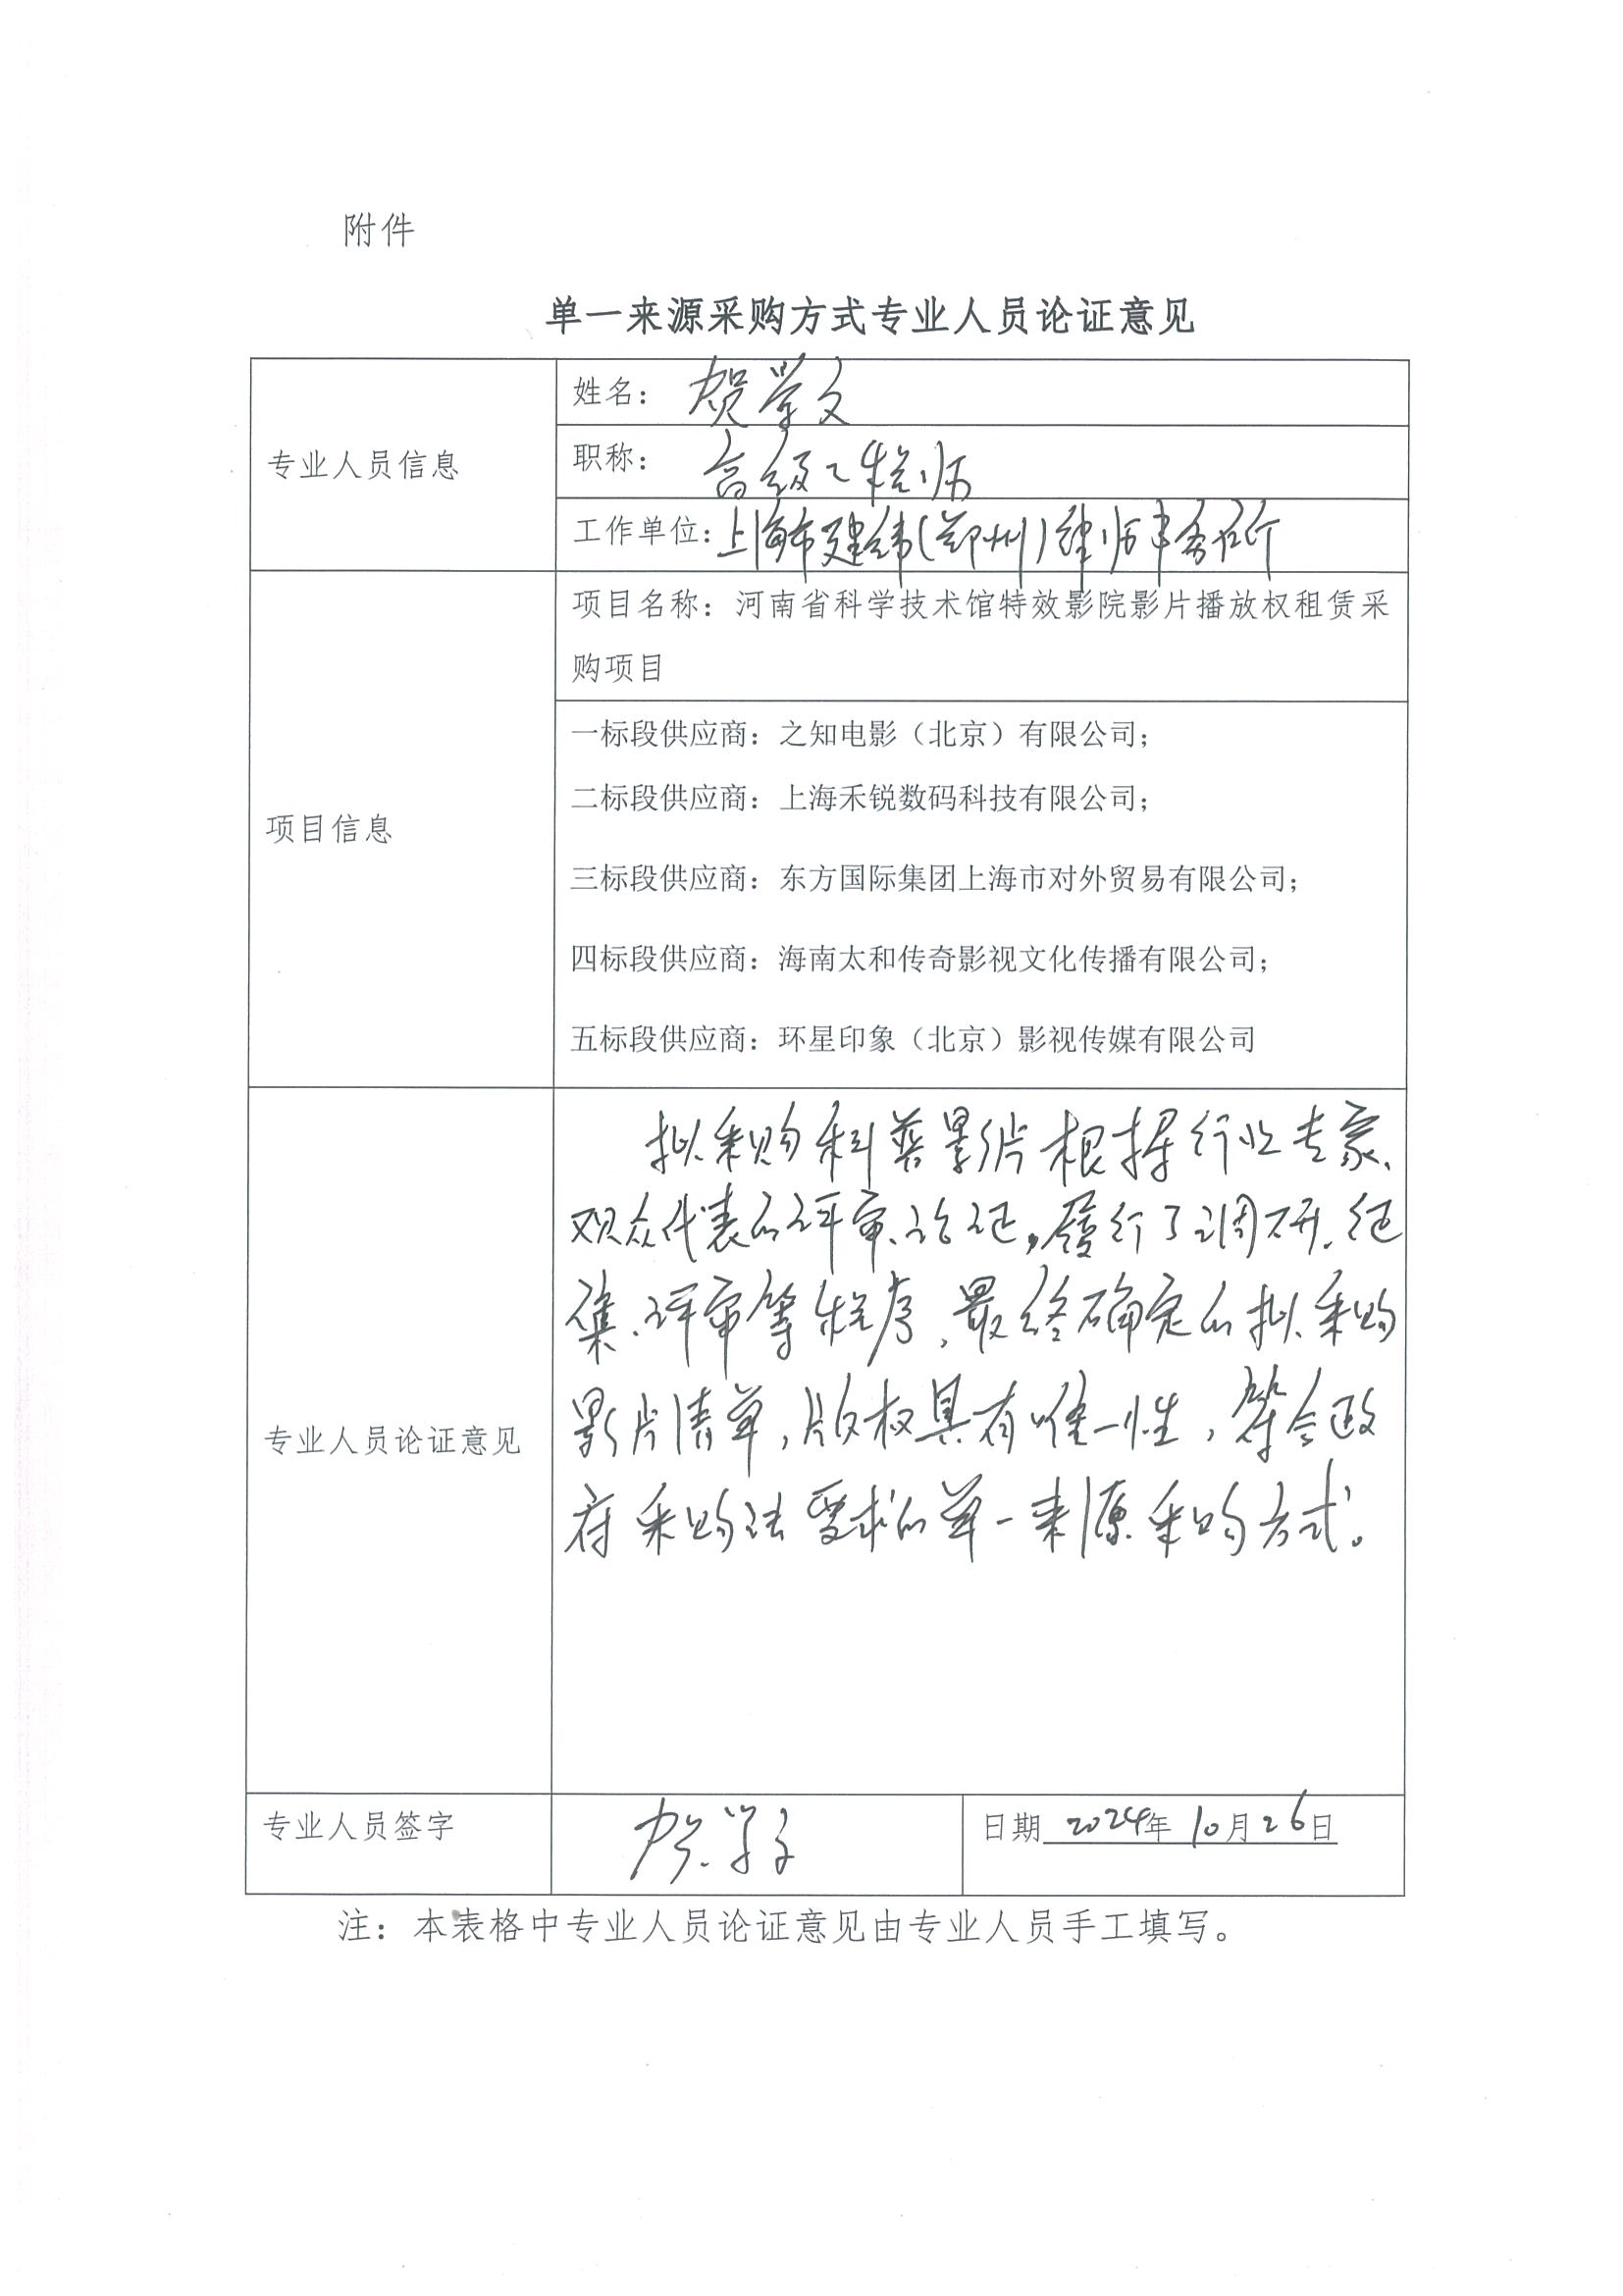 附件
单一来源采购方式专业人员论证意见
专业人员信息
姓名：贺学文
职称：高级工程师
工作单位：上海市建纬（郑州）律师事务所
项目信息
项目名称：河南省科学技术馆特效影院影片播放权租赁采
购项目
一标段供应商：之知电影（北京）有限公司；
二标段供应商：上海禾锐数码科技有限公司；
三标段供应商：东方国际集团上海市对外贸易有限公司；
四标段供应商：海南太和传奇影视文化传播有限公司；
五标段供应商：环星印象（北京）影视传媒有限公司
专业人员论证意见
拟采购科普影片根据行业专家、
观众代表的评审、论证，履行了调研、征
集、评审等程序，最终确定的拟采购
影片清单，版权具有唯一性，符合政
府采购法要求的单一来源采购方式。
专业人员签字
贺学文
日期 2024年 10月26日
注：本表格中专业人员论证意见由专业人员手工填写。